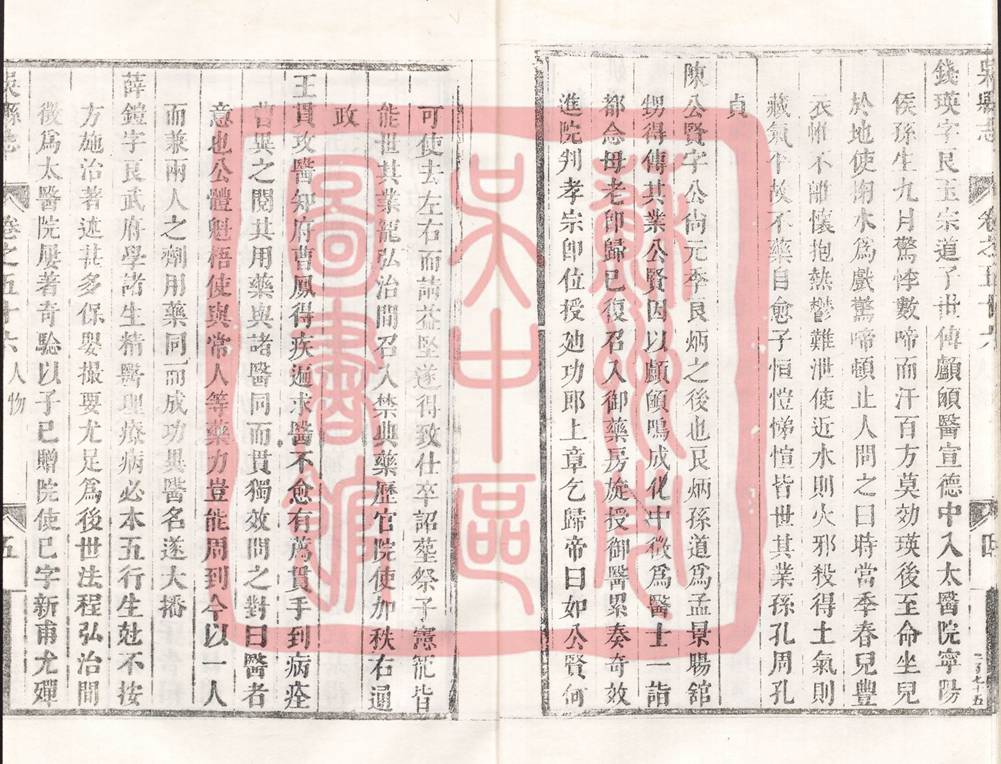 吳縣志 卷之五十六 四 一百九十五
錢瑛字良玉宗道子世傳顱頗醫宣德中入太醫院寧陽
侯孫生九月驚悸數啼而汗百方莫効瑛後至命坐兒
於地使掬水為戲驚啼頓止人問之曰時當季春兒豐
衣帷不離懷抱熱鬱難泄使近水則火邪殺得土氣則
藏氣平故不藥自愈子恒愷悌愃皆世其業孫孔周孔
貞
陳公賢字公尚元季良炳之後也良炳孫道為孟景暘舘
甥得傳其業公賢因以顱頗鳴成化中徵為醫士一詣
都念母老即歸已復召入御藥房旋授御醫累奏奇效
進院判孝宗即位授廸功郎上章乞歸帝曰如公賢何
可使去左右而請益堅遂得致仕卒詔塟祭子憲寵皆
能世其業寵弘治間召入禁典藥歷官院使加秩右通
政
王貫攻醫知府曹鳳得疾遍求醫不愈有薦貫手到病痊
昔與之閱其用藥與諸醫同而貫獨效問之對曰醫者
意也公體魁梧使與常人等藥力豈能周到今以一人
而兼兩人之劑用藥同而成功異醫名遂大播
薛鎧字良武府學諸生精醫理療病必本五行生尅不按
方施治著述甚多保嬰撮要尤足為後世法程弘治間
徵為太醫院屢著奇驗以子已贈院使已字新甫尤殫
吳縣志 卷之五十六 人物 五
蘇州市
吳中區
圖書館